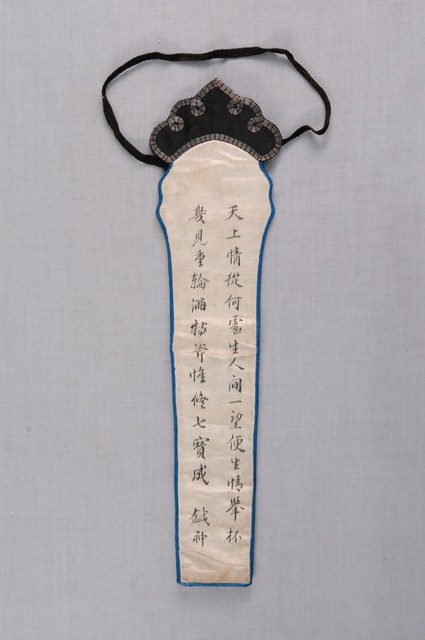 天上情從何處生人間一望便生情舉杯
幾見重輪滿持斧惟修七寶成 鍼神